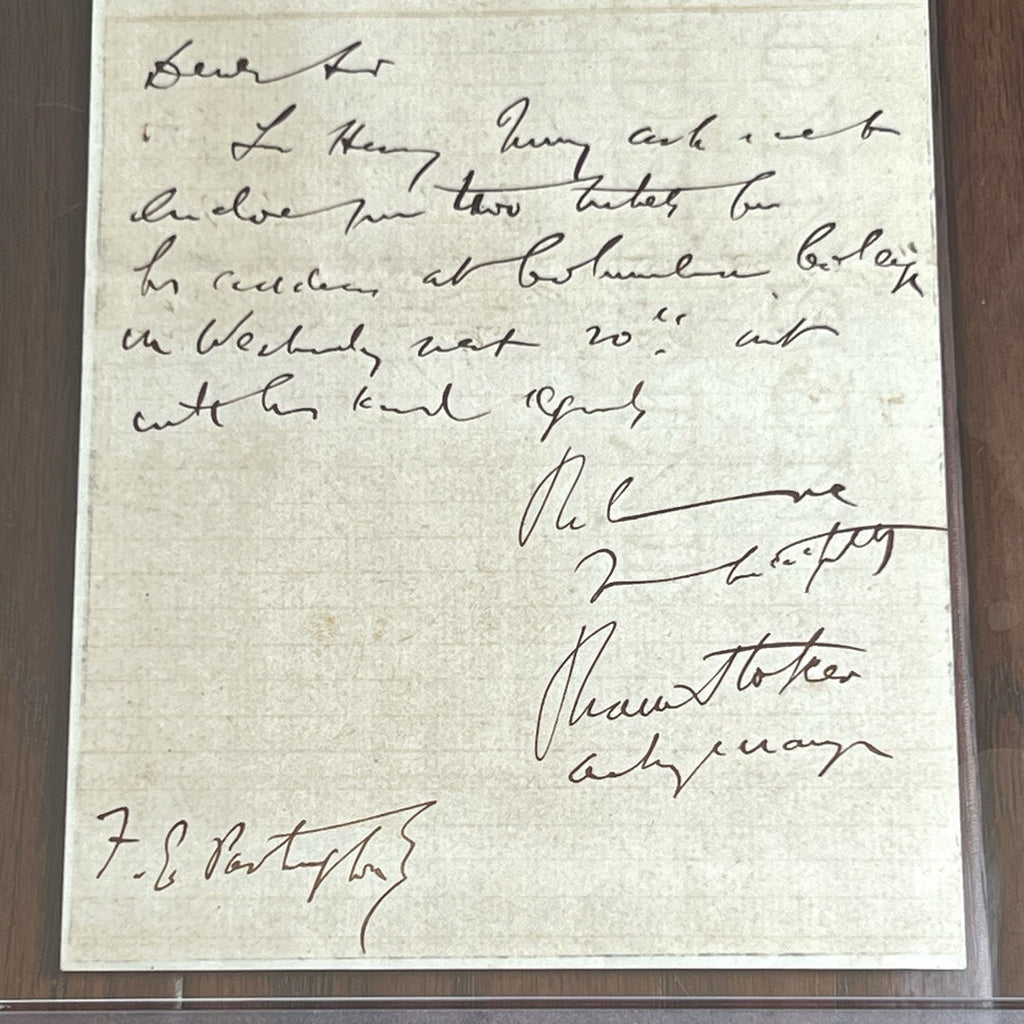 Dear Sir
Sir Henry Irving asks me to
enclose you two tickets for
his address at Columbia College
on Wednesday next 20" inst
with his kind regards
Believe me
Yours faithfully
Bram Stoker
Acting Manager
F. E. Partington Esq